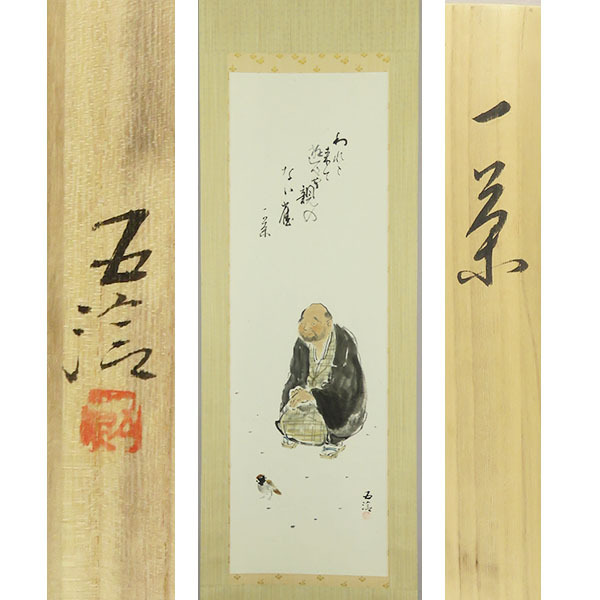 五
われと
来て
遊べや親の
ない雀
一茶
五
一茶